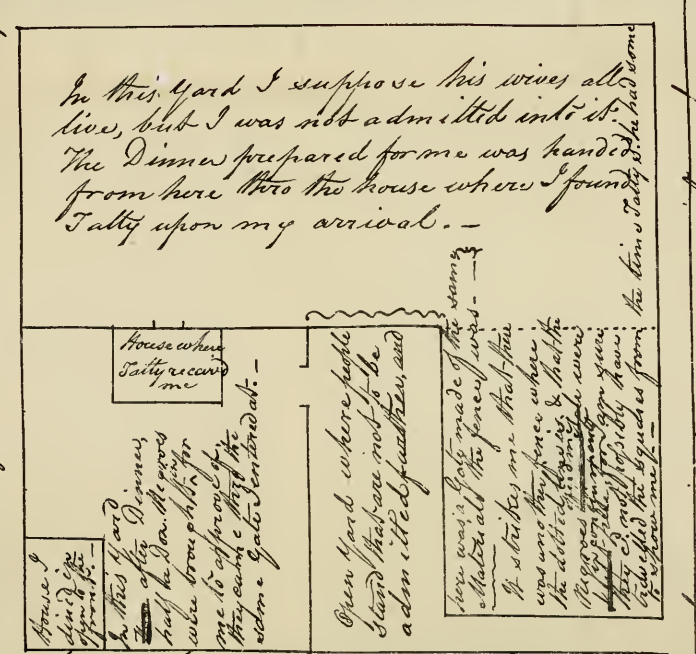 In this Yard I suppose his wives all
live, but I was not admitted into it.
The Dinner prepared for me was handed
from here thro the house where I found
Tatty upon my arrival. –
House where
Tatty recievd
me
House I
dined in
open to the
front. –
In this Yard
after Dinner,
half a Doz. Negroes
were brought in for
me to approve of
they came thro the
same Gate I entered at. –
Open Yard where people
stand that are not to be
admitted further, and
here was a Gate made of the same
Materials the fence was. –
It strikes me that there
was another fence where
the dotted line is, & that the
Negroes were
for I am sure
they cd. not possibly have
travelled the squares from
the time Tatty sd. he had some
to show me. –